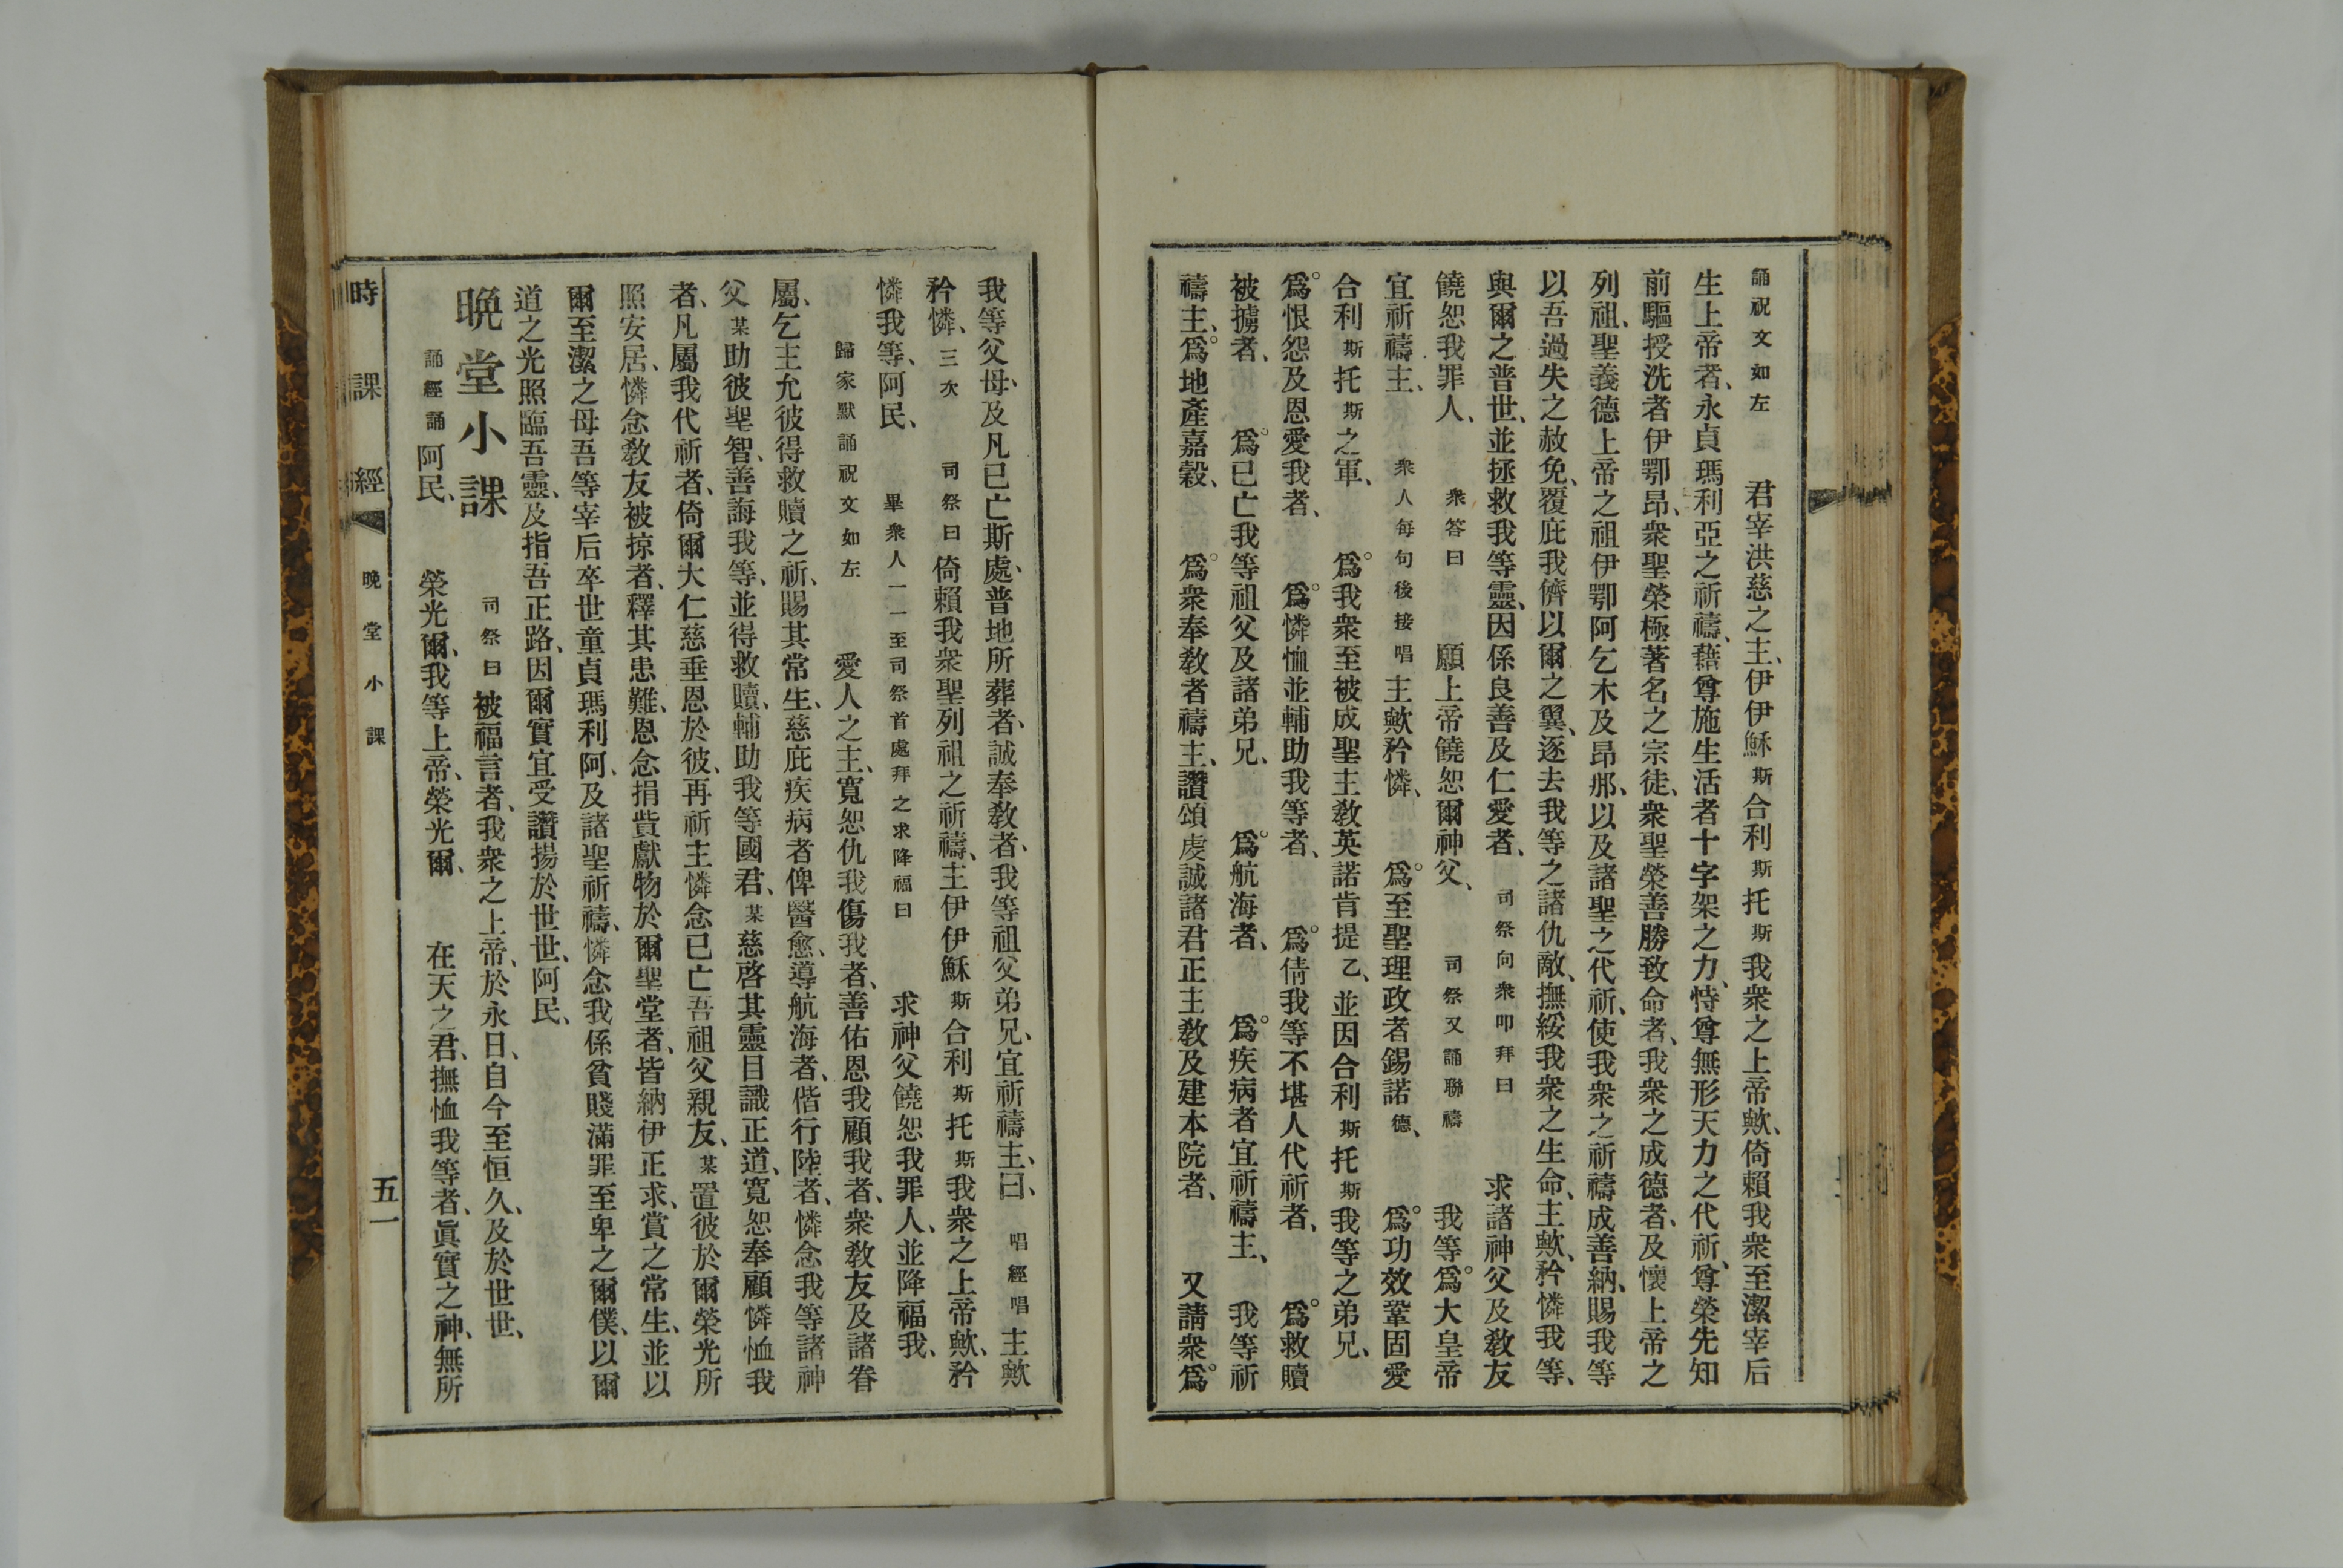 誦祝文如左 君宰洪慈之主、伊伊穌斯合利斯托斯我衆之上帝歟、倚賴我衆至潔宰后
生上帝者、永貞瑪利亞之祈禱、藉尊施生活者十字架之力、恃尊無形天力之代祈、尊榮先知
前驅授洗者伊鄂昂、衆聖榮極著名之宗徒、衆聖榮善勝致命者、我衆之成德者、及懷上帝之
列祖、聖義德上帝之祖伊鄂阿乞木及昂那、以及諸聖之代祈、使我衆之祈禱成善納、賜我等
以吾過失之赦免、覆庇我儕以爾之翼、逐去我等之諸仇敵、撫綏我衆之生命、主歟、矜憐我等、
與爾之普世、並拯救我等靈、因係良善及仁愛者、 司祭向衆叩拜曰 求諸神父及敎友
饒恕我罪人、 衆答曰 願上帝饒恕爾神父、 司祭又誦聯禱 我等爲大皇帝
宜祈禱主、 衆人每句後接唱 主歟矜憐、 爲至聖理政者錫諾德、 爲功效鞏固愛
合利斯托斯之軍、 爲我衆至被成聖主敎英諾肯提乙、並因合利斯托斯我等之弟兄、
爲恨怨及恩愛我者、 爲憐恤並輔助我等者、 爲倩我等不堪人代祈者、 爲救贖
被擄者、 爲已亡我等祖父及諸弟兄、 爲航海者、 爲疾病者宜祈禱主、 我等祈
禱主、爲地產嘉穀、 爲衆奉敎者禱主、讚頌虔誠諸君正主敎及建本院者、 又請衆爲
我等父母、及凡已亡斯處、普地所葬者、誠奉敎者、我等祖父弟兄、宜祈禱主、曰、 唱經唱 主歟
矜憐、三次 司祭曰 倚賴我衆聖列祖之祈禱、主伊伊穌斯合利斯托斯我衆之上帝歟、矜
憐我等、阿民、 畢衆人一一至司祭首處拜之求降福曰 求神父饒恕我罪人、並降福我、
歸家默誦祝文如左 愛人之主、寬恕仇我傷我者、善佑恩我顧我者、衆敎友及諸眷
屬、乞主允彼得救贖之祈、賜其常生、慈庇疾病者俾醫愈、導航海者、偕行陸者、憐念我等諸神
父某助彼聖智、善誨我等、並得救贖、輔助我等國君、某慈啓其靈目識正道、寬恕奉顧憐恤我
者、凡屬我代祈者、倚爾大仁慈垂恩於彼、再祈主憐念已亡吾祖父親友、某置彼於爾榮光所
照安居、憐念敎友被掠者、釋其患難、恩念捐貲獻物於爾聖堂者、皆納伊正求、賞之常生、並以
爾至潔之母吾等宰后卒世童貞瑪利阿、及諸聖祈禱、憐念我係貧賤滿罪至卑之爾僕、以爾
道之光照臨吾靈、及指吾正路、因爾實宜受讚揚於世世、阿民、
晚堂小課 司祭曰 被福言者、我衆之上帝、於永日、自今至恒久、及於世世、
誦經誦 阿民、 榮光爾、我等上帝、榮光爾、 在天之君、撫恤我等者、眞實之神、無所
時課經 晚堂小課 五一